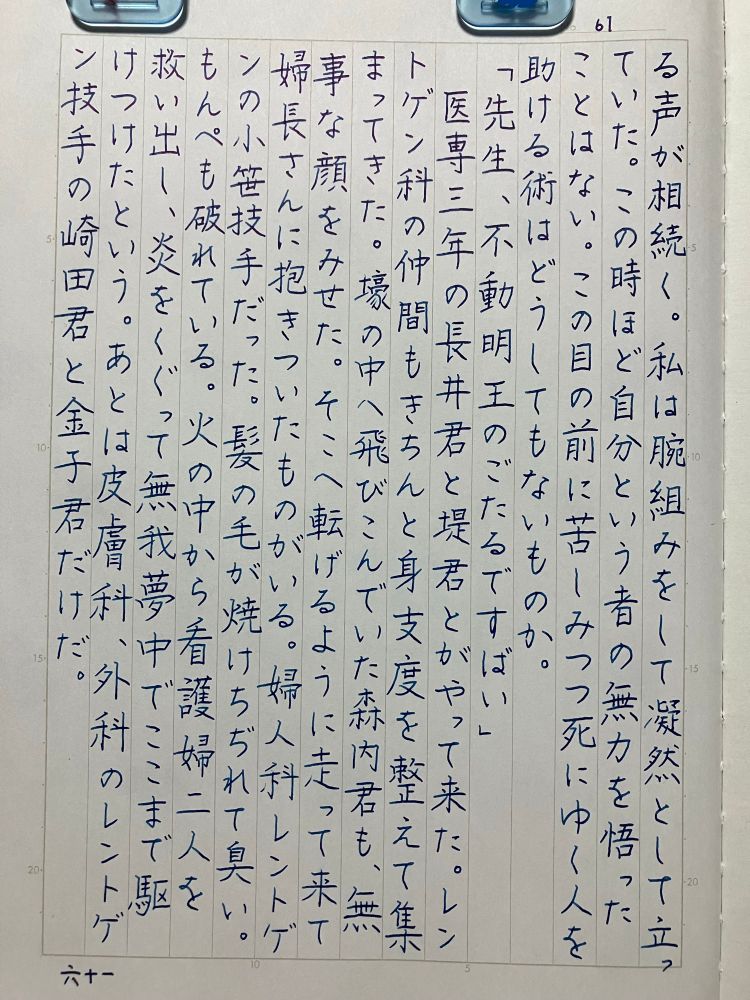 61
る声が相続く。私は腕組みをして凝然として立っ
ていた。この時ほど自分という者の無力を悟った
ことはない。この目の前に苦しみつつ死にゆく人を
助ける術はどうしてもないものか。
「先生、不動明王のごたるですばい」
医専三年の長井君と堤君とがやって来た。レン
トゲン科の仲間もきちんと身支度を整えて集
まってきた。壕の中へ飛びこんでいた森内君も、無
事な顔をみせた。そこへ転げるように走って来て
婦長さんに抱きついたものがいる。婦人科レントゲ
ンの小笹技手だった。髪の毛が焼けちぢれて臭い。
もんぺも破れている。火の中から看護婦二人を
救い出し、炎をくぐって無我夢中でここまで駆
けつけたという。あとは皮膚科、外科のレントゲ
ン技手の崎田君と金子君だけだ。
5
10
15
20
5
10
15
20
10
5
六十一